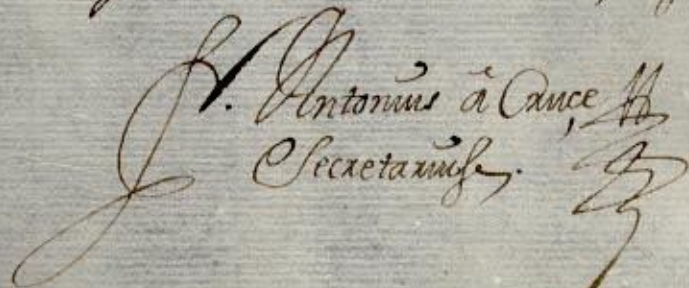 Fr. Antonius â Cruce,
Secretarius.